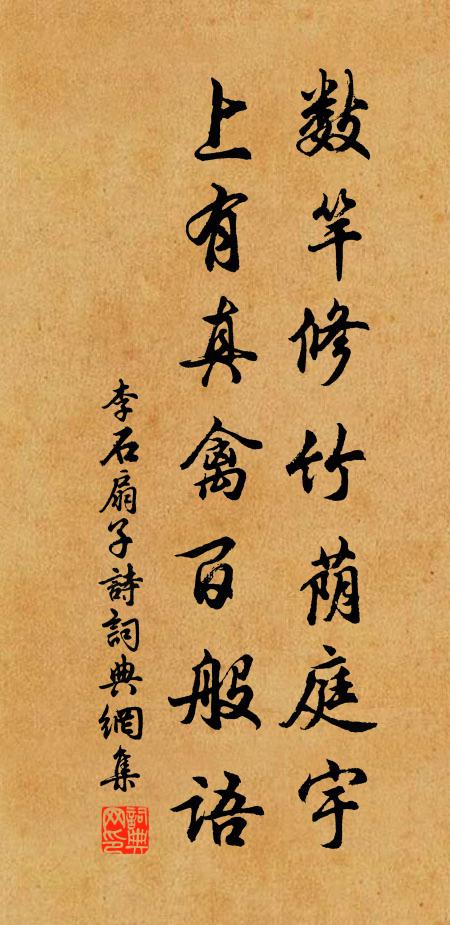 数竿修竹荫庭宇
上有真禽百般语
李石扇子詩詞典網集
詞典网印